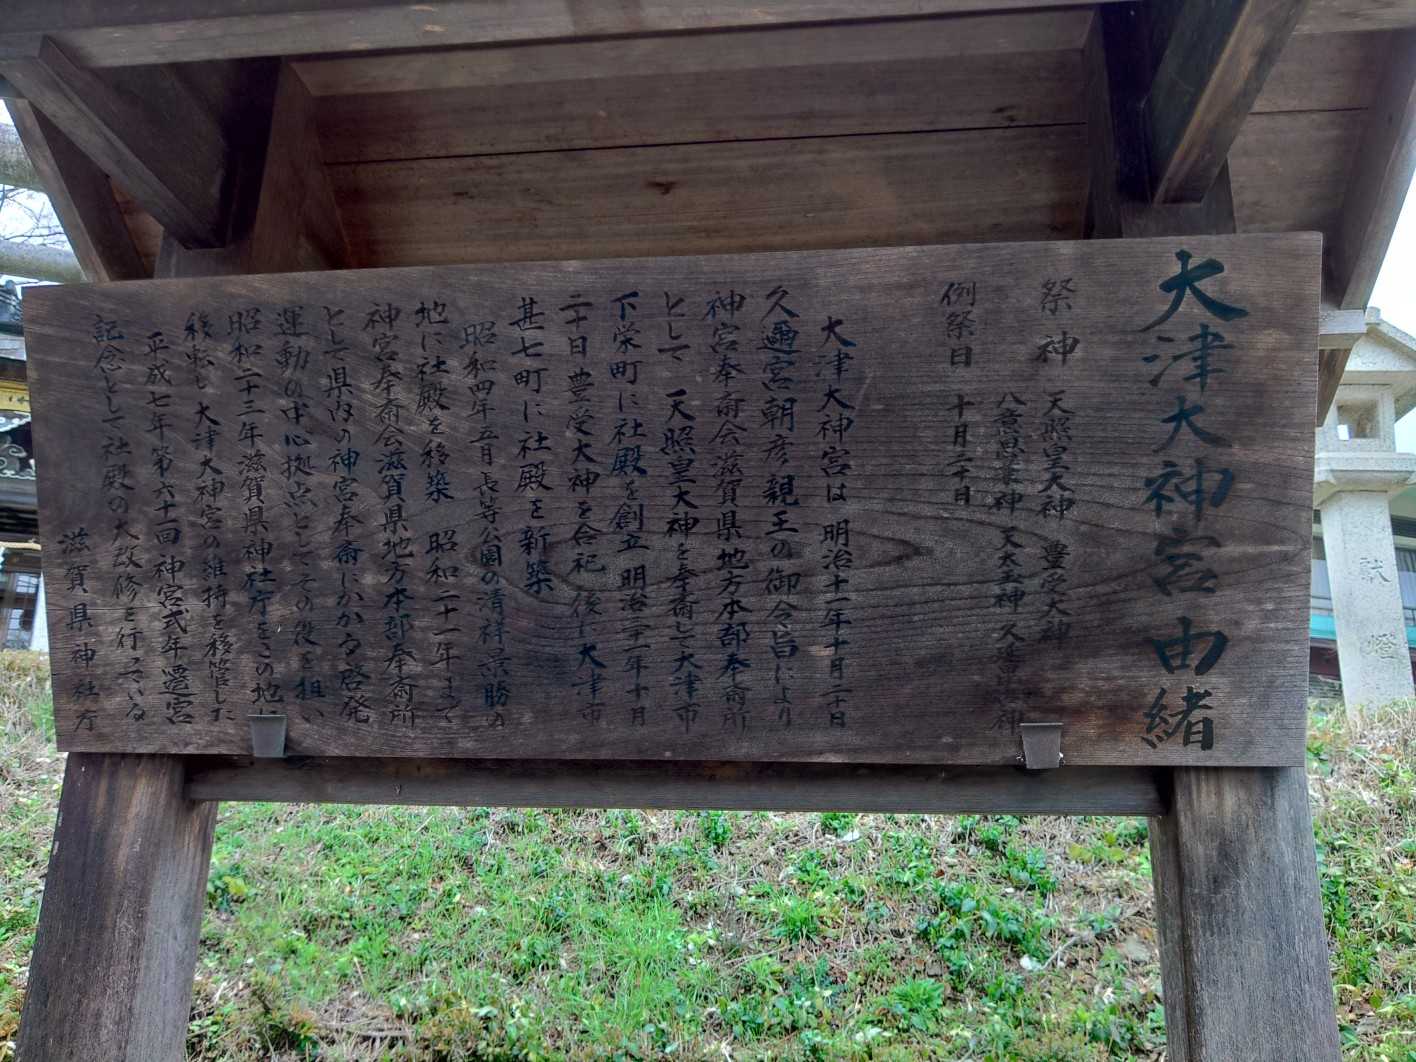 大津大神宮由緒
祭神 天照皇大神 豊受大神
八意思兼神 天太玉神 久
例祭日 十月二十日
大津大神宮は 明治十一年十月二十日
久邇宮朝彦親王の御令旨により
神宮奉斎会滋賀県地方本部奉斎所
として 天照皇大神を奉斎して大津市
下栄町に社殿を創立 明治三十一年十月
二十日豊受大神を合祀 後に大津市
甚七町に社殿を新築
昭和四年五月長等公園の清祥景勝の
地に社殿を移築 昭和二十一年まで
神宮奉斎会滋賀県地方本部奉斎所
として県内の神宮奉斎にかかる啓発
運動の中心拠点としてその役を担い
昭和二十三年滋賀県神社庁をこの地に
移転し大津大神宮の維持を移管した
平成七年第六十一回神宮式年遷宮
記念として社殿の大改修を行っている
滋賀県神社庁
献燈